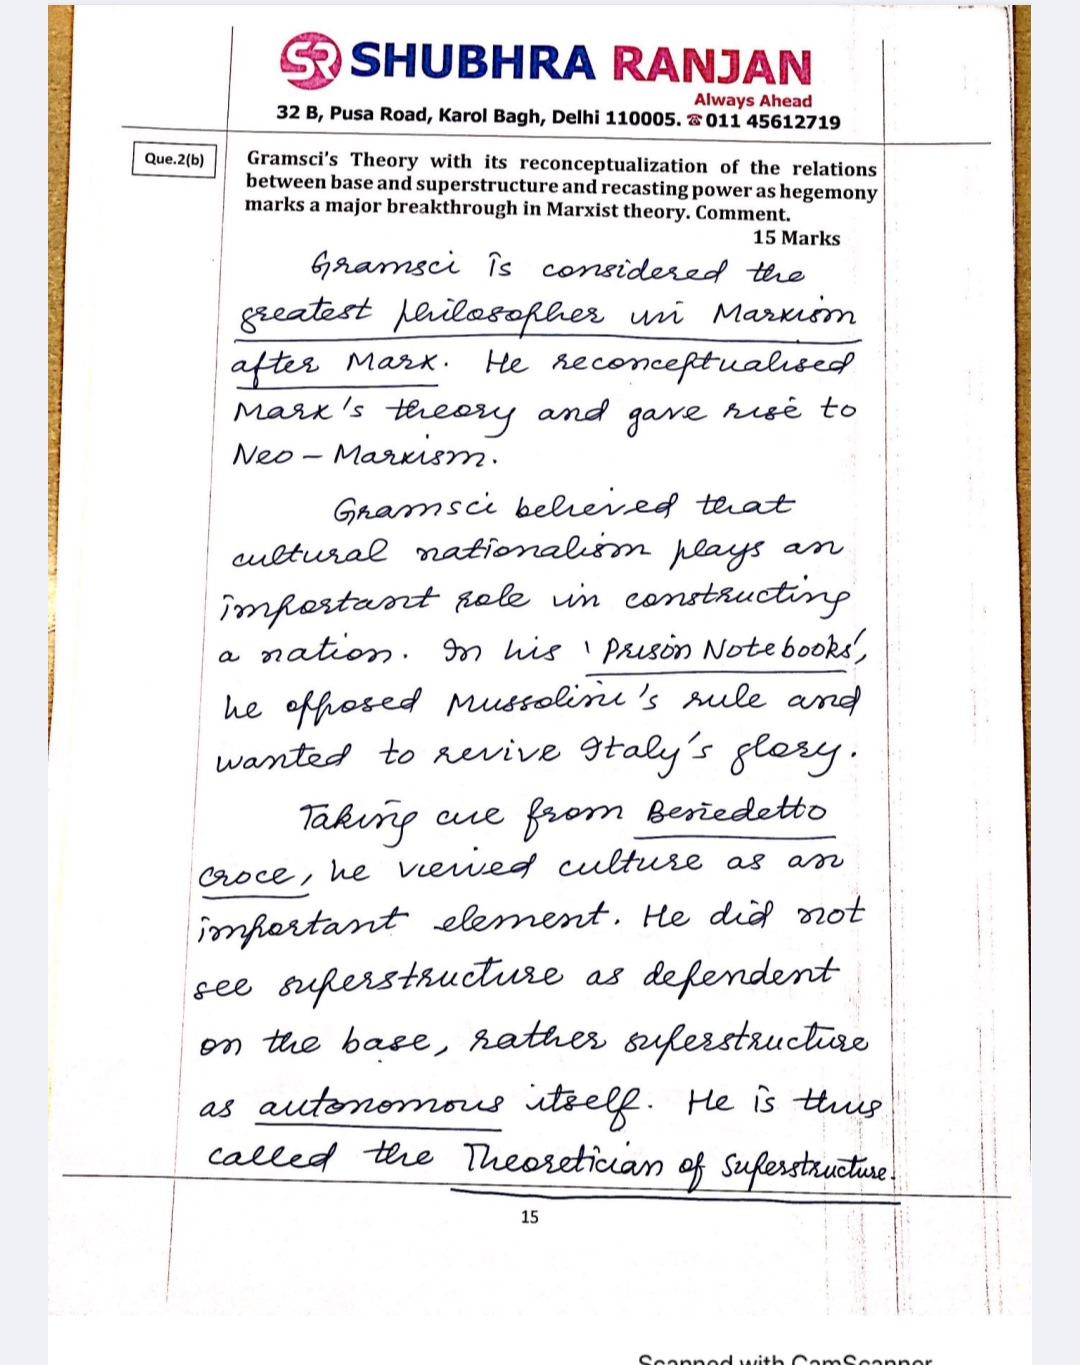 SR SHUBHRA RANJAN
Always Ahead
32 B, Pusa Road, Karol Bagh, Delhi 110005. ☎ 011 45612719
Que.2(b)
Gramsci's Theory with its reconceptualization of the relations
between base and superstructure and recasting power as hegemony
marks a major breakthrough in Marxist theory. Comment.
15 Marks
Gramsci is considered the
greatest philosopher in Marxism
after Marx. He reconceptualised
Marx's theory and gave rise to
Neo - Marxism.
Gramsci believed that
cultural nationalism plays an
important role in constructing
a nation. In his 'Prison Notebooks',
he opposed Mussolini's rule and
wanted to revive Italy's glory.
Taking cue from Benedetto
Croce, he viewed culture as an
important element. He did not
see superstructure as dependent
on the base, rather superstructure
as autonomous itself. He is thus
called the Theoretician of Superstructure.
15
Scanned with CamScanner